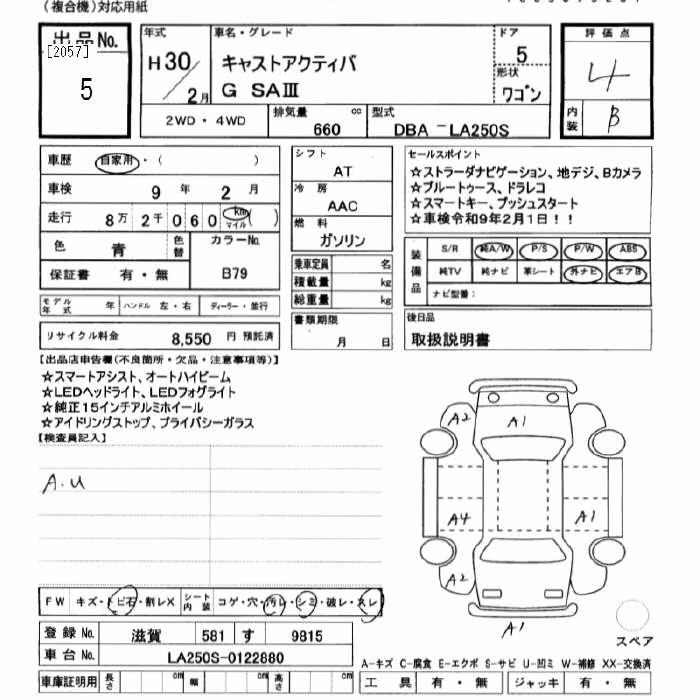 (複合機)対応用紙
出品No. [2057] 5
年式 H30/2月
車名・グレード キャストアクティバ G SAⅢ
ドア 5 形状 ワゴン
評価点 4
内装 B
2WD・4WD
排気量 660 cc
型式 DBA-LA250S
車歴 自家用・( )
車検 9年 2月
走行 8万 2千 0 6 0 km マイル ( )
色 青 色替
カラーNo. B79
保証書 有・無
シフト AT
冷房 AAC
燃料 ガソリン
乗車定員 名
積載量 kg
総重量 kg
セールスポイント
☆ストラーダナビゲーション、地デジ、Bカメラ
☆ブルートゥース、ドラレコ
☆スマートキー、プッシュスタート
☆車検令和9年2月1日!!
装備品 S/R 純A/W P/S P/W ABS
純TV 純ナビ 革シート 外ナビ エアB
ナビ型番:
モデル年式 年 ハンドル 左・右 ディーラー・並行
リサイクル料金 8,550 円 預託済
書類期限 月 日
後日品
取扱説明書
【出品店申告欄(不良箇所・欠品・注意事項等)】
☆スマートアシスト、オートハイビーム
☆LEDヘッドライト、LEDフォグライト
☆純正15インチアルミホイール
☆アイドリングストップ、プライバシーガラス
【検査員記入】
A.U
A2
A1
A4
A1
A2
A1
スペア
FW キズ・トビ石・割レX シート内装 コゲ・穴・汚レ・シミ・破レ・スレ
登録No. 滋賀 581 す 9815
車台No. LA250S-0122880
A-キズ C-腐食 E-エクボ S-サビ U-凹ミ W-補修 XX-交換済
車庫証明用 長さ cm 幅 cm 高さ cm
工具 有・無 ジャッキ 有・無